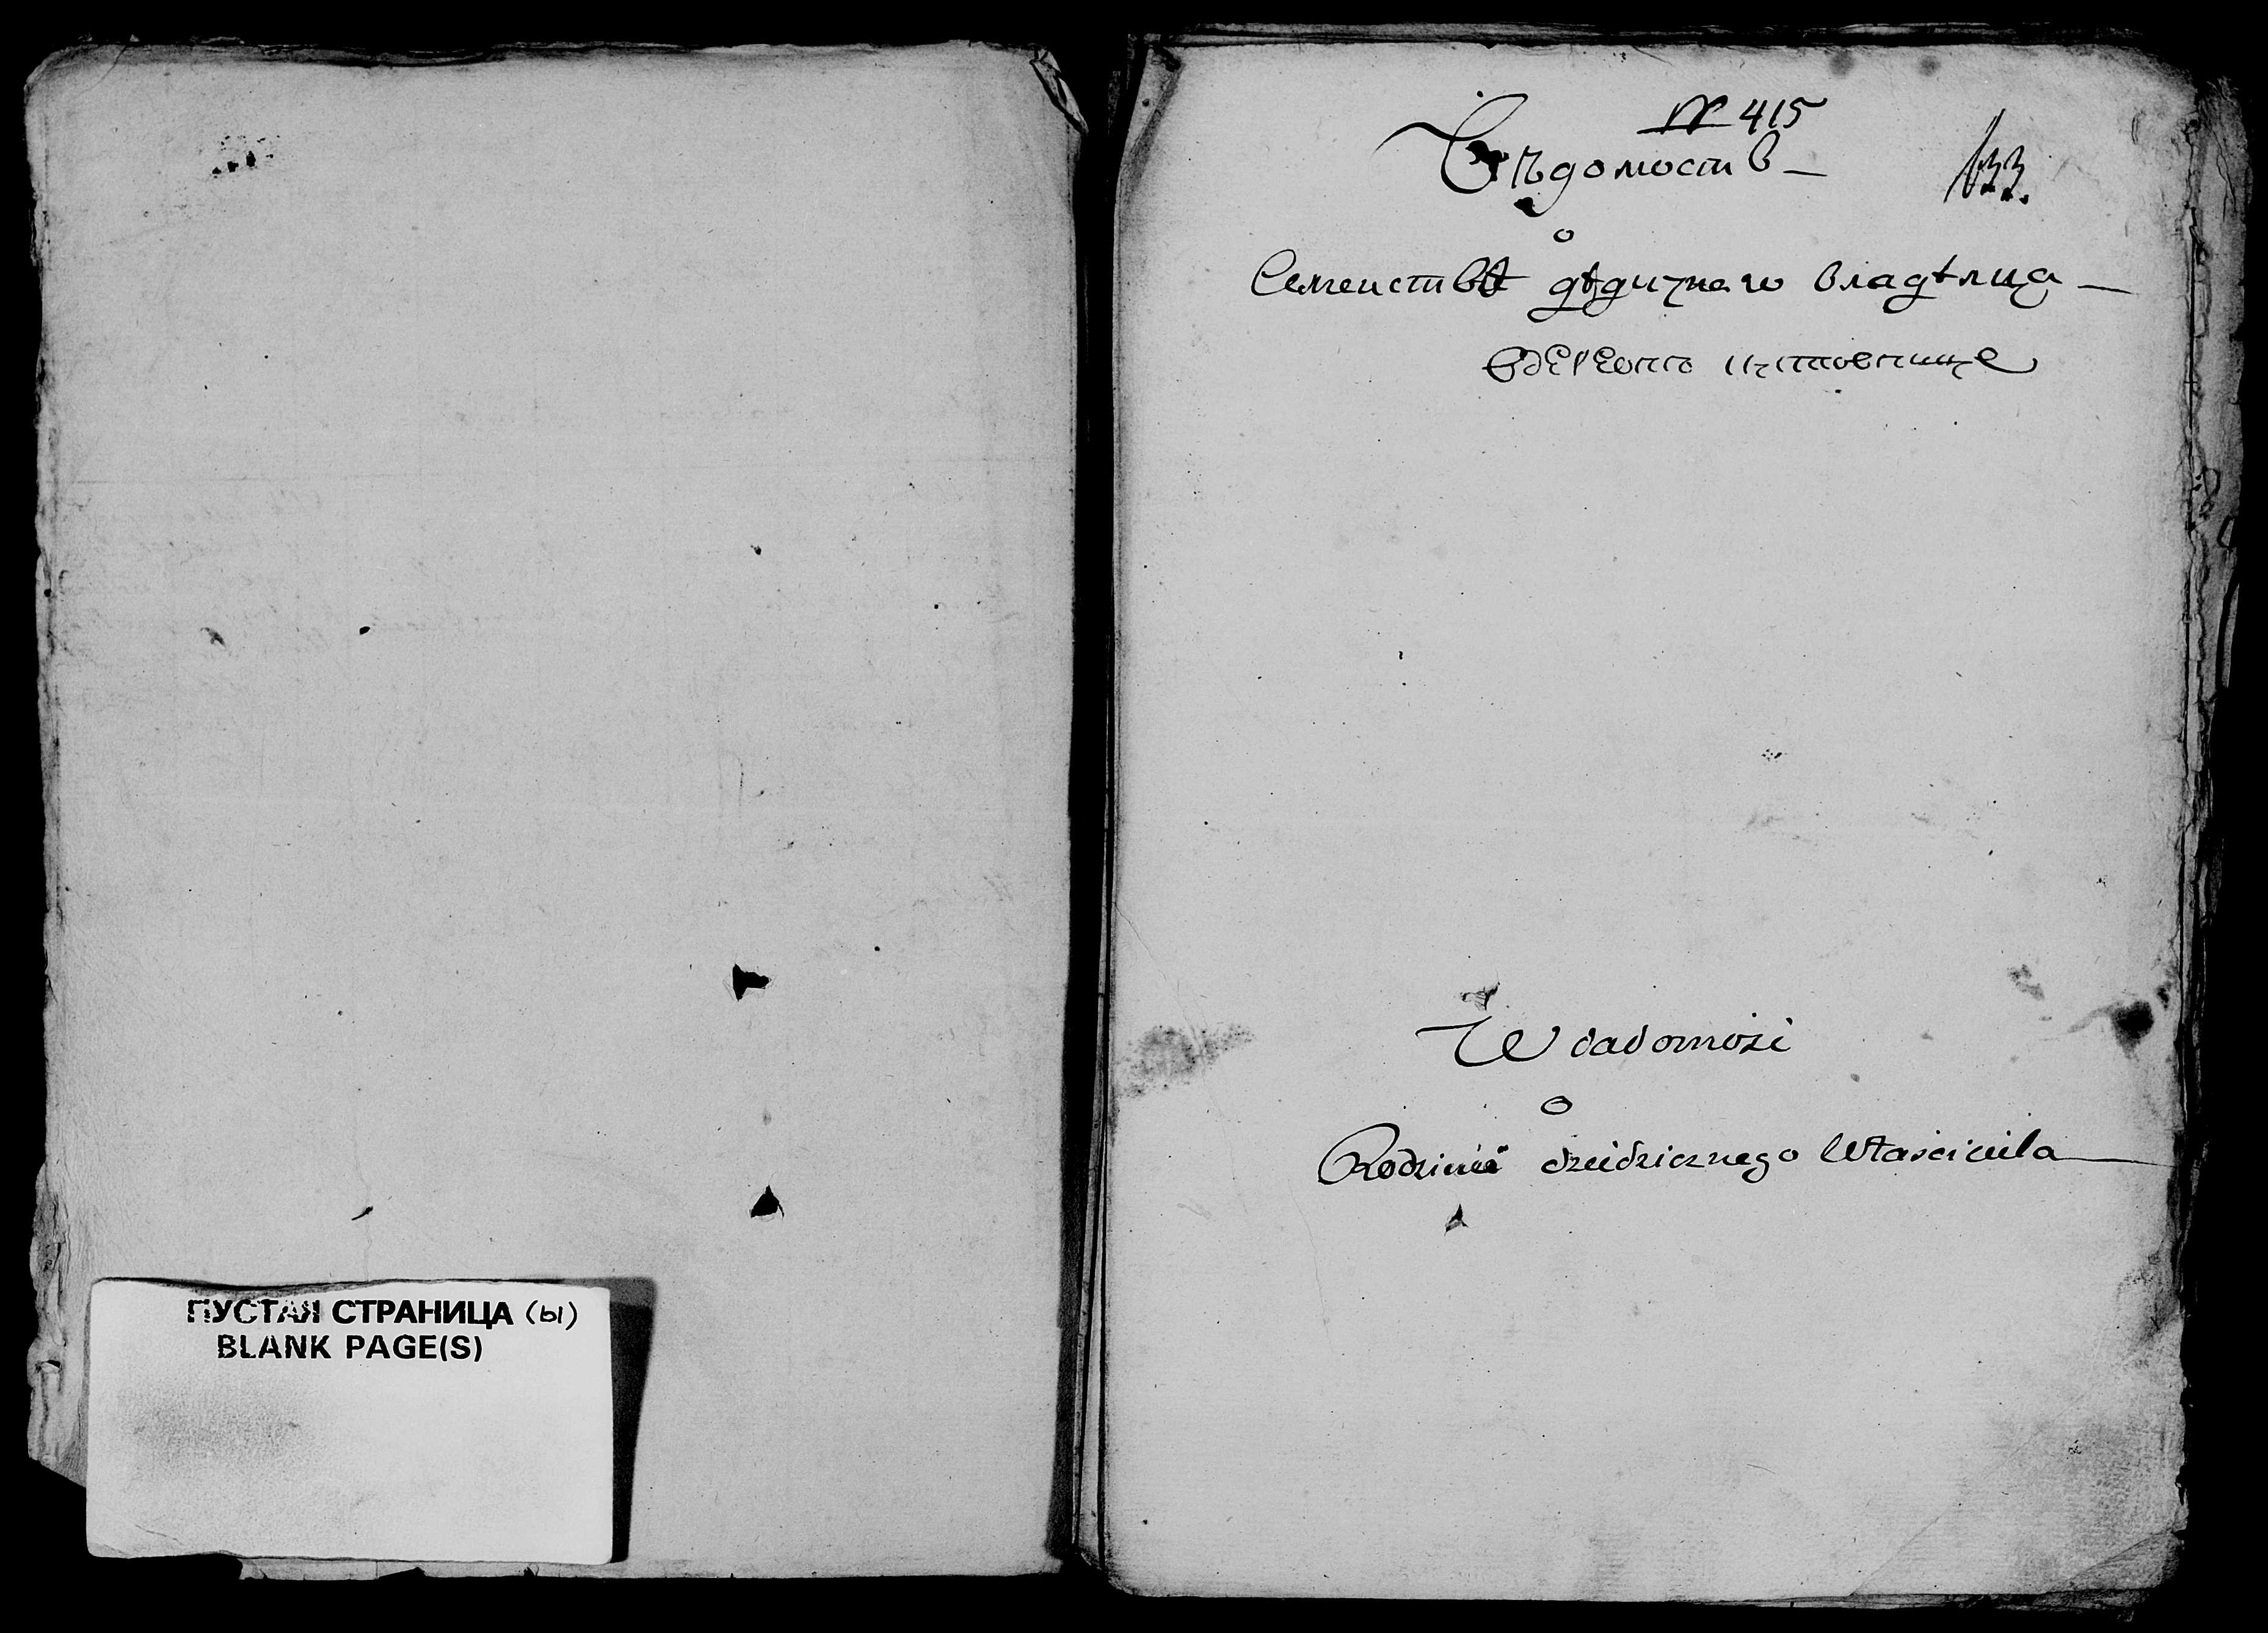 ПУСТАЯ СТРАНИЦА (ы)
BLANK PAGE(S)
№ 415
Вѣдомость
133.
о
Семействѣ дѣдичнаго владѣлца
Wiadomość
o
Rodzinie dziedzicznego Właściciela